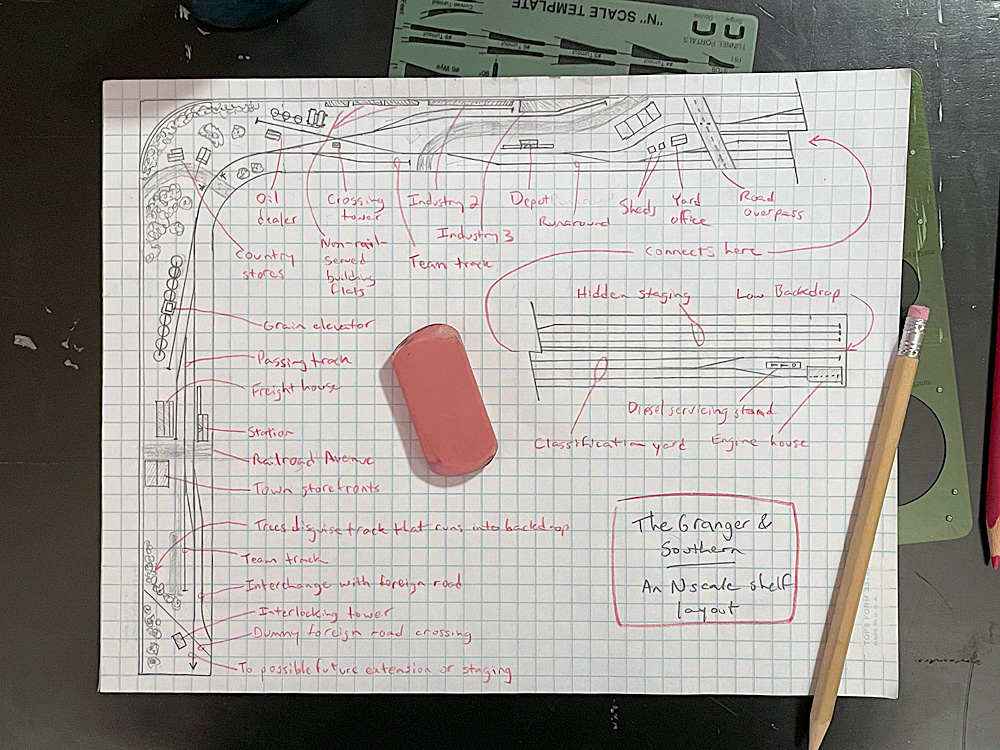 "N" SCALE TEMPLATE
TUNNEL PORTALS
Curved Turnout
#8 Turnout
#6 Turnout
#4 Turnout
#6 Wye
90°
Oil
dealer
Crossing
tower
Industry 2
Depot
Runaround
Sheds
Yard
office
Road
overpass
Industry 3
Country
stores
Non-rail-
served
building
flats
Team track
connects here
Hidden staging
Low Backdrop
Grain elevator
Passing track
Freight house
Station
Railroad Avenue
Town storefronts
Diesel servicing stand
Classification yard
Engine house
Trees disguise track that runs into backdrop
Team track
Interchange with foreign road
Interlocking tower
Dummy foreign road crossing
To possible future extension or staging
The Granger &
Southern
An N scale shelf
layout